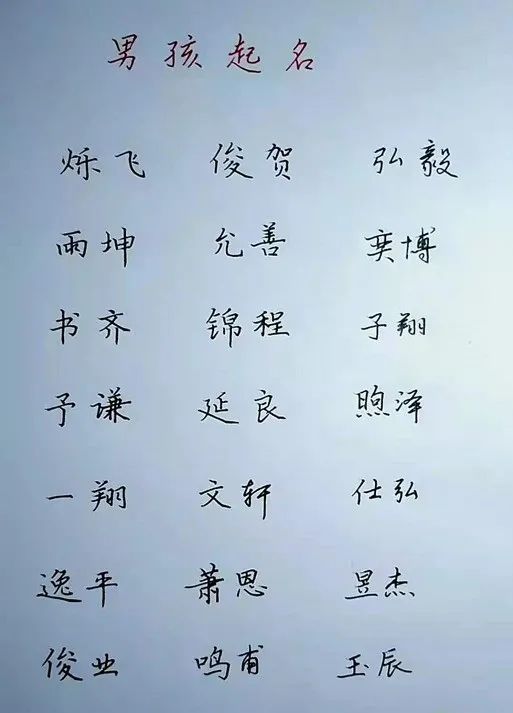 男孩起名
烁飞 俊贺 弘毅
雨坤 允善 奕博
书齐 锦程 子翔
予谦 延良 煦泽
一翔 文轩 仕弘
逸平 萧恩 昱杰
俊业 鸣甫 玉辰